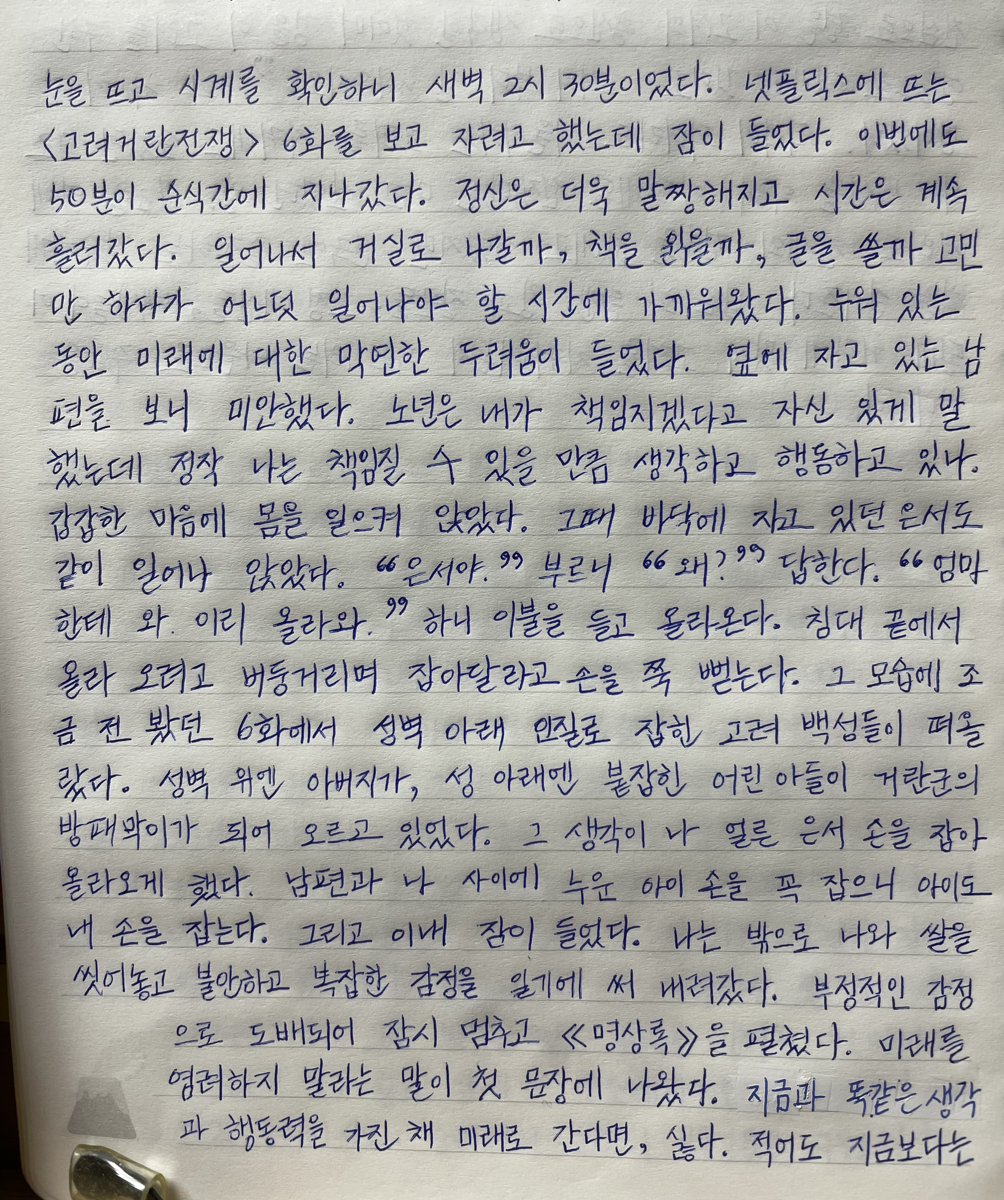 눈을 뜨고 시계를 확인하니 새벽 2시 30분이었다. 넷플릭스에 뜨는
<고려거란전쟁> 6화를 보고 자려고 했는데 잠이 들었다. 이번에도
50분이 순식간에 지나갔다. 정신은 더욱 말짱해지고 시간은 계속
흘러갔다. 일어나서 거실로 나갈까, 책을 읽을까, 글을 쓸까 고민
만 하다가 어느덧 일어나야 할 시간에 가까워왔다. 누워 있는
동안 미래에 대한 막연한 두려움이 들었다. 옆에 자고 있는 남
편을 보니 미안했다. 노년은 내가 책임지겠다고 자신 있게 말
했는데 정작 나는 책임질 수 있을 만큼 생각하고 행동하고 있나.
갑갑한 마음에 몸을 일으켜 앉았다. 그때 바닥에 자고 있던 은서도
같이 일어나 앉았다. “은서야.” 부르니 “왜?” 답한다. “엄마
한테 와. 이리 올라와.” 하니 이불을 들고 올라온다. 침대 끝에서
올라 오려고 버둥거리며 잡아달라고 손을 쭉 뻗는다. 그 모습에 조
금 전 봤던 6화에서 성벽 아래 인질로 잡힌 고려 백성들이 떠올
랐다. 성벽 위엔 아버지가, 성 아래엔 붙잡힌 어린 아들이 거란군의
방패막이가 되어 오르고 있었다. 그 생각이 나 얼른 은서 손을 잡아
올라오게 했다. 남편과 나 사이에 누운 아이 손을 꼭 잡으니 아이도
내 손을 잡는다. 그리고 이내 잠이 들었다. 나는 밖으로 나와 쌀을
씻어놓고 불안하고 복잡한 감정을 일기에 써 내려갔다. 부정적인 감정
으로 도배되어 잠시 멈추고 《명상록》을 펼쳤다. 미래를
염려하지 말라는 말이 첫 문장에 나왔다. 지금과 똑같은 생각
과 행동력을 가진 채 미래로 간다면, 싫다. 적어도 지금보다는